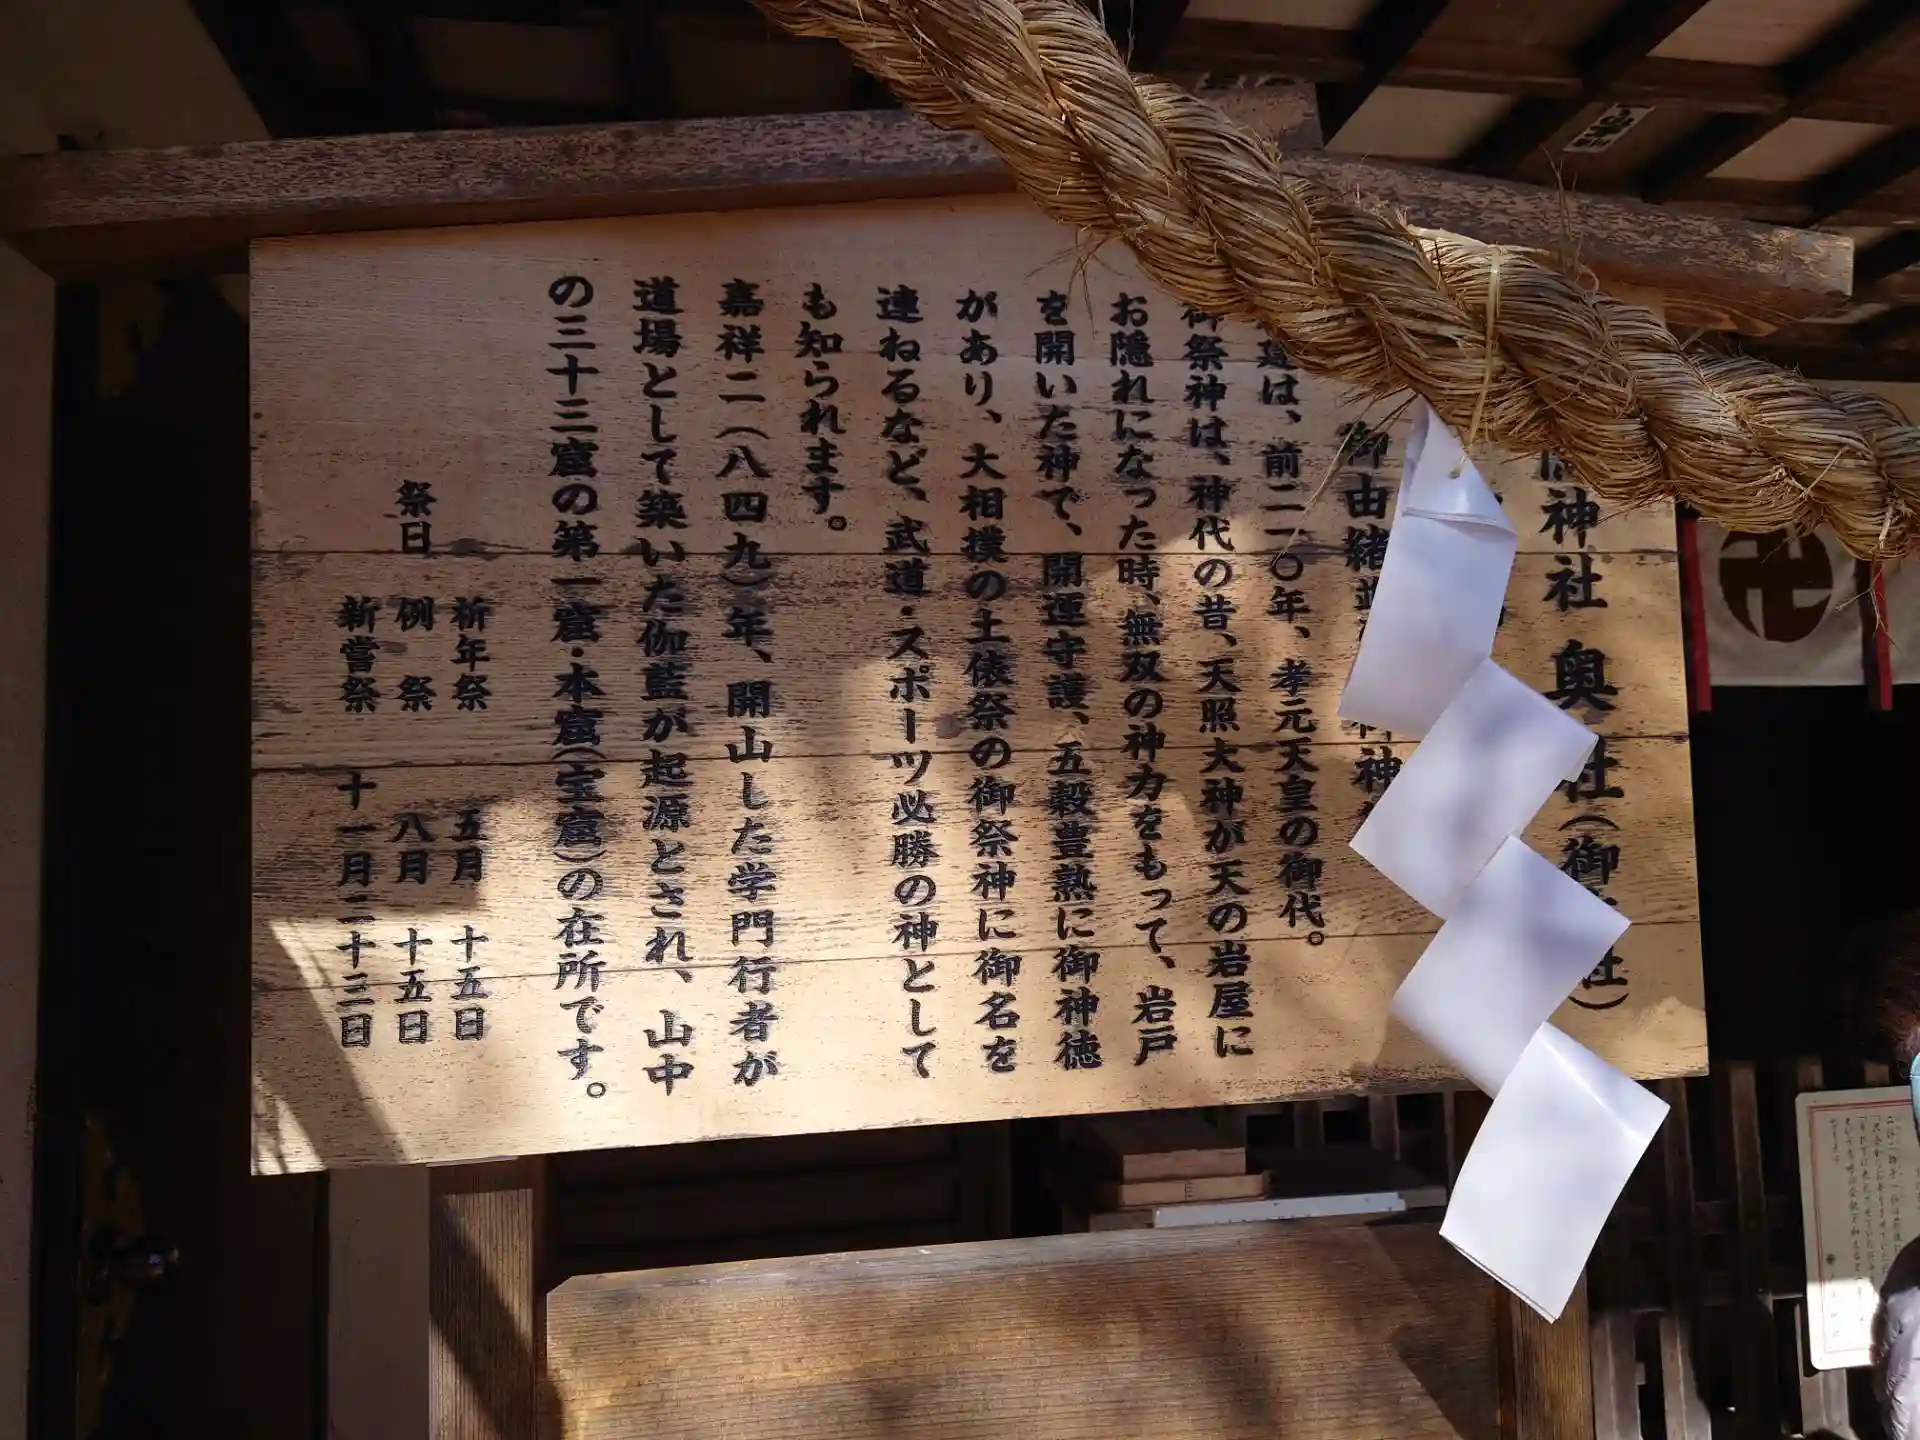 神社 奥社(御 社)
御由緒並 神
建は、前二一〇年、孝元天皇の御代。
御祭神は、神代の昔、天照大神が天の岩屋に
お隠れになった時、無双の神力をもって、岩戸
を開いた神で、開運守護、五穀豊熟に御神徳
があり、大相撲の土俵祭の御祭神に御名を
連ねるなど、武道・スポーツ必勝の神として
も知られます。
嘉祥二(八四九)年、開山した学門行者が
道場として築いた伽藍が起源とされ、山中
の三十三窟の第一窟・本窟(宝窟)の在所です。
祈年祭 五月 十五日
祭日 例 祭 八月 十五日
新嘗祭 十一月二十三日